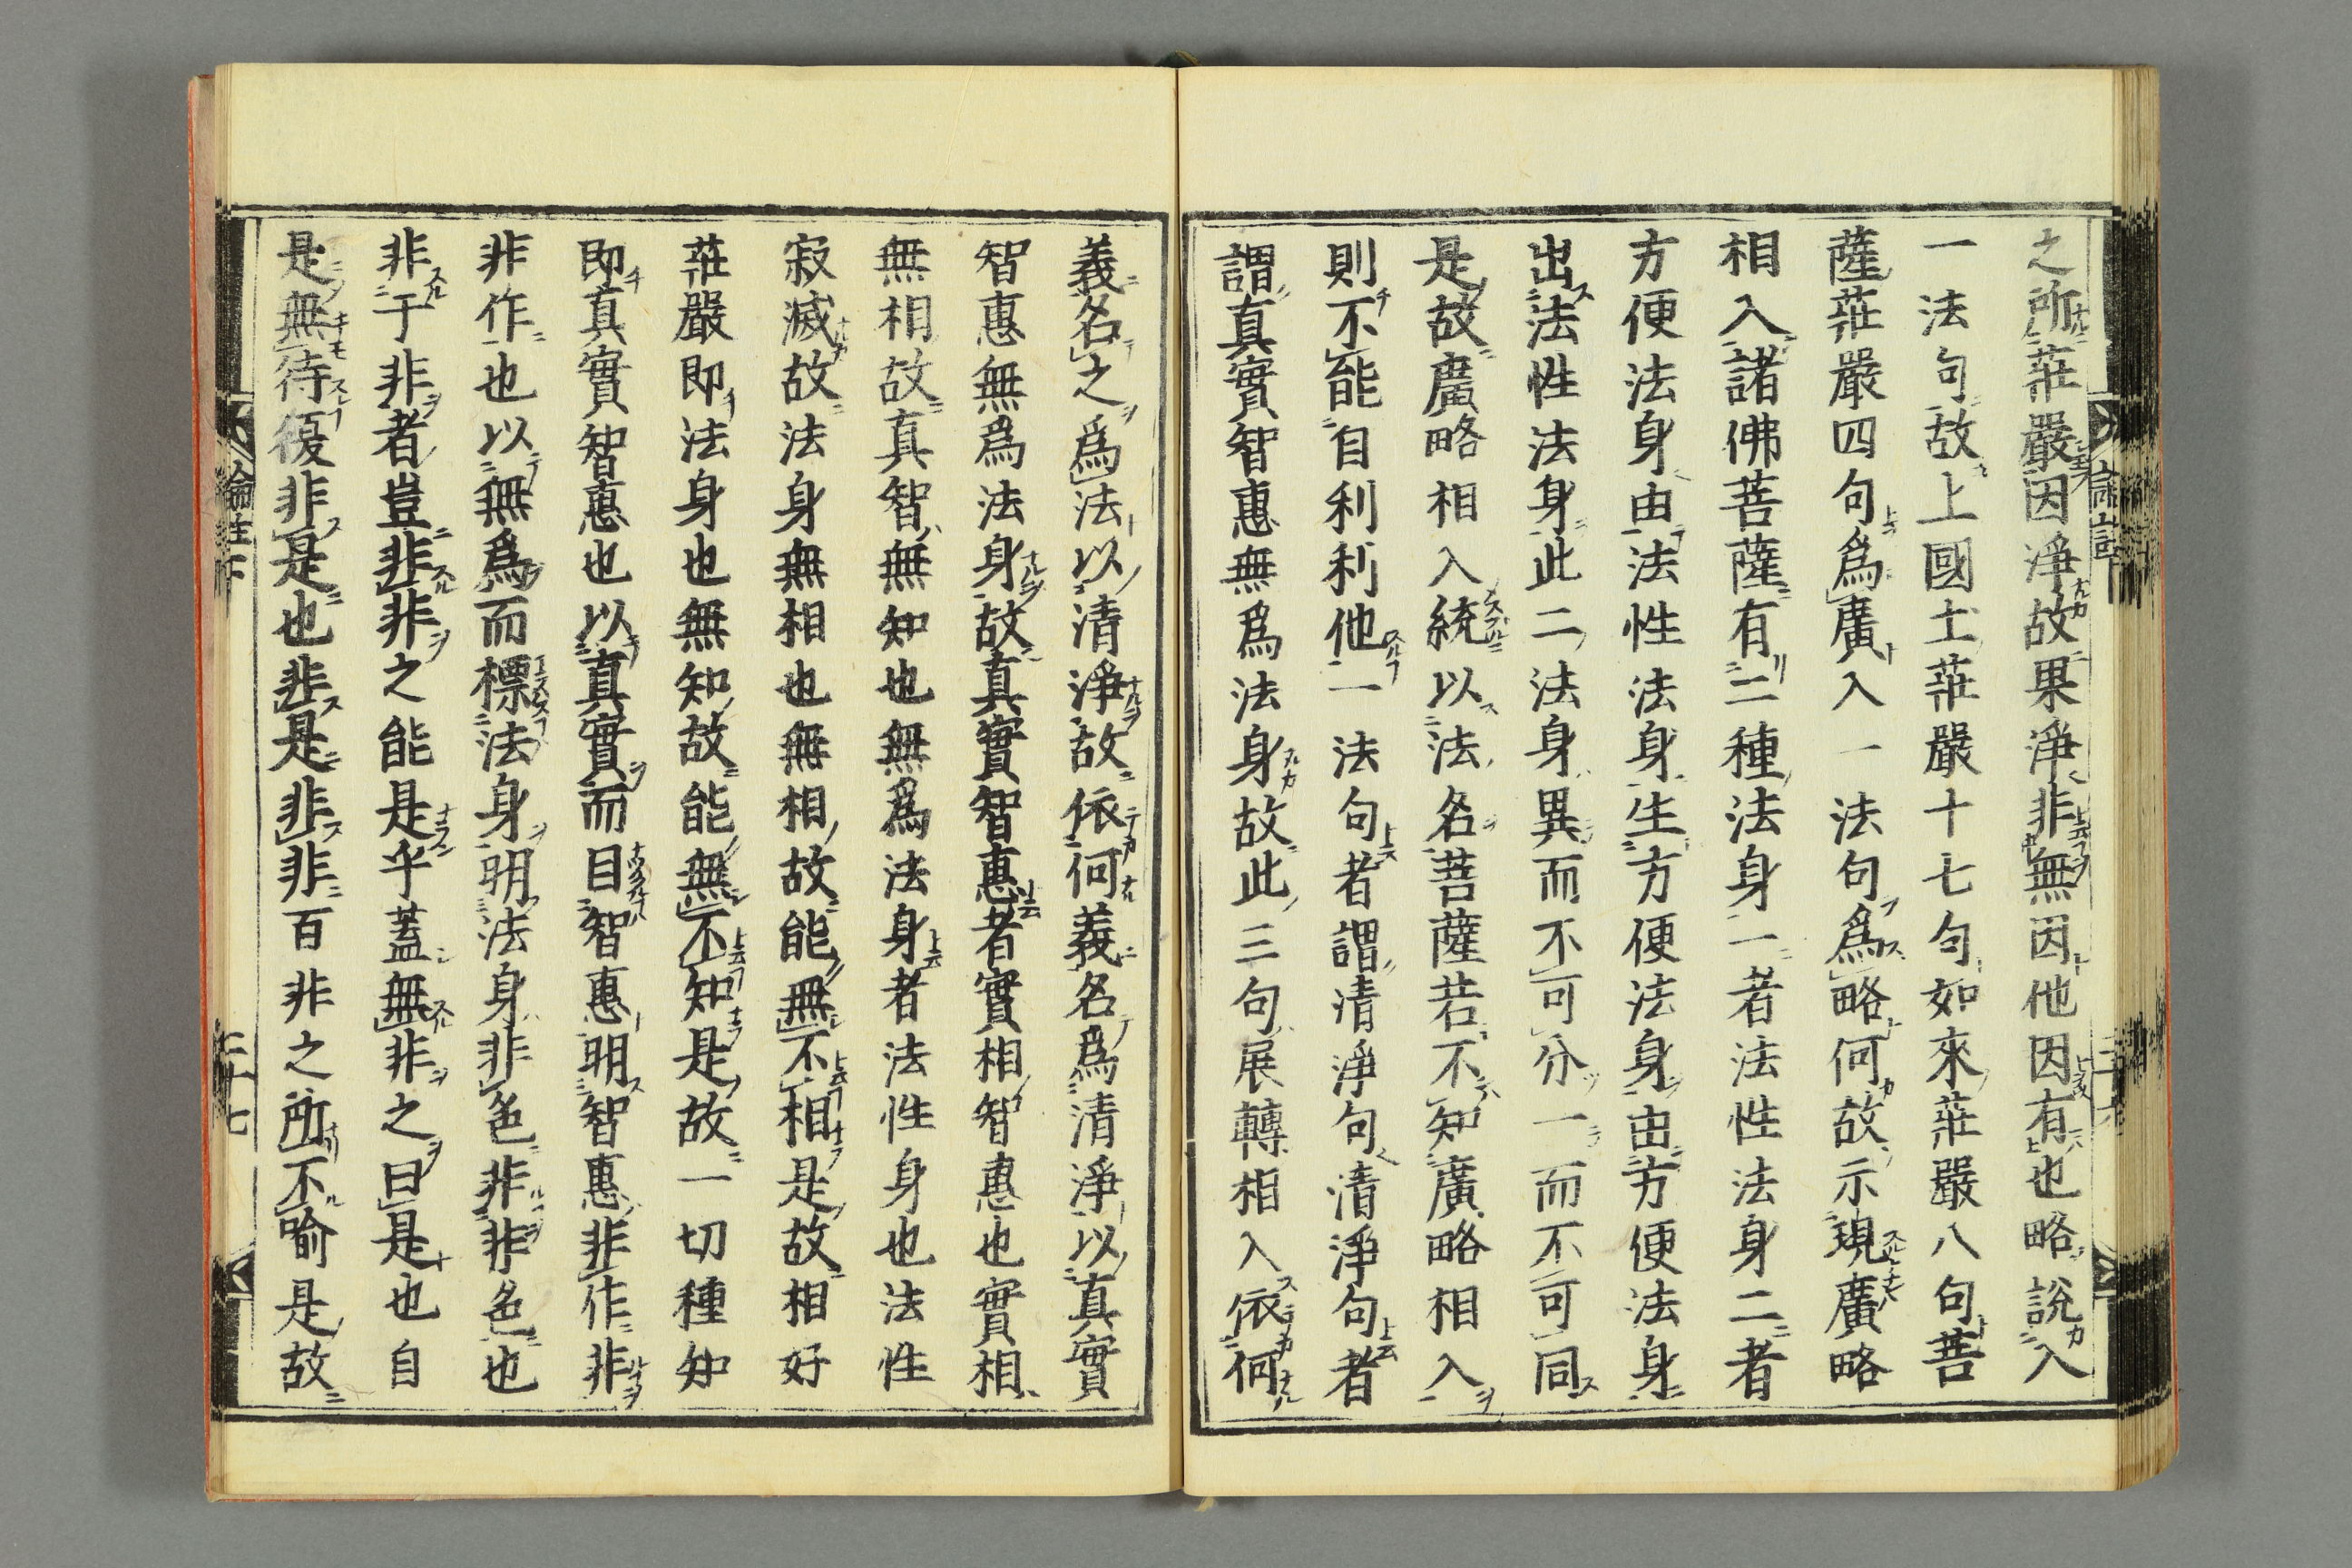 之所莊嚴因淨故果淨非無因他因有也略說入
一法句故上國土莊嚴十七句如來莊嚴八句菩
薩莊嚴四句爲廣入一法句爲略何故示現廣略
相入諸佛菩薩有二種法身一者法性法身二者
方便法身由法性法身生方便法身由方便法身
出法性法身此二法身異而不可分一而不可同
是故廣略相入統以法名菩薩若不知廣略相入
則不能自利利他一法句者謂清淨句清淨句者
謂真實智惠無爲法身故此三句展轉相入依何
義名之爲法以清淨故依何義名爲清淨以真實
智惠無爲法身故真實智惠者實相智惠也實相
無相故真智無知也無爲法身者法性身也法性
寂滅故法身無相也無相故能無不相是故相好
莊嚴即法身也無知故能無不知是故一切種知
即真實智惠也以真實而目智惠明智惠非作非
非作也以無爲而標法身明法身非色非非色也
非于非者豈非非之能是乎蓋無非之曰是也自
是無待復非是也非是非非百非之所不喻是故
論註下
二十七